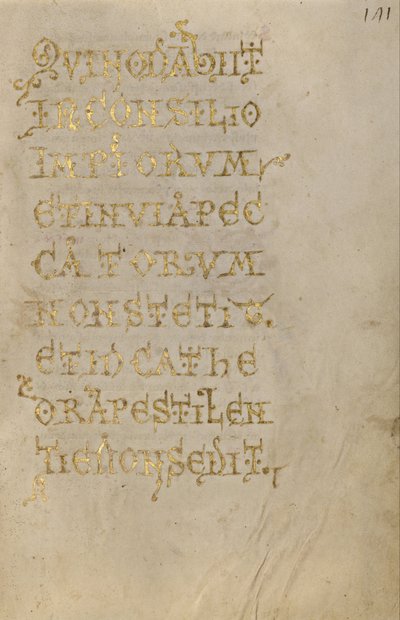 QVINONABIIT
INCONSILIO
IMPIORVM
ETINVIAPEC
CATORVM
NONSTETIT.
ETINCATHE
DRAPESTILEN
TIENONSEDIT.